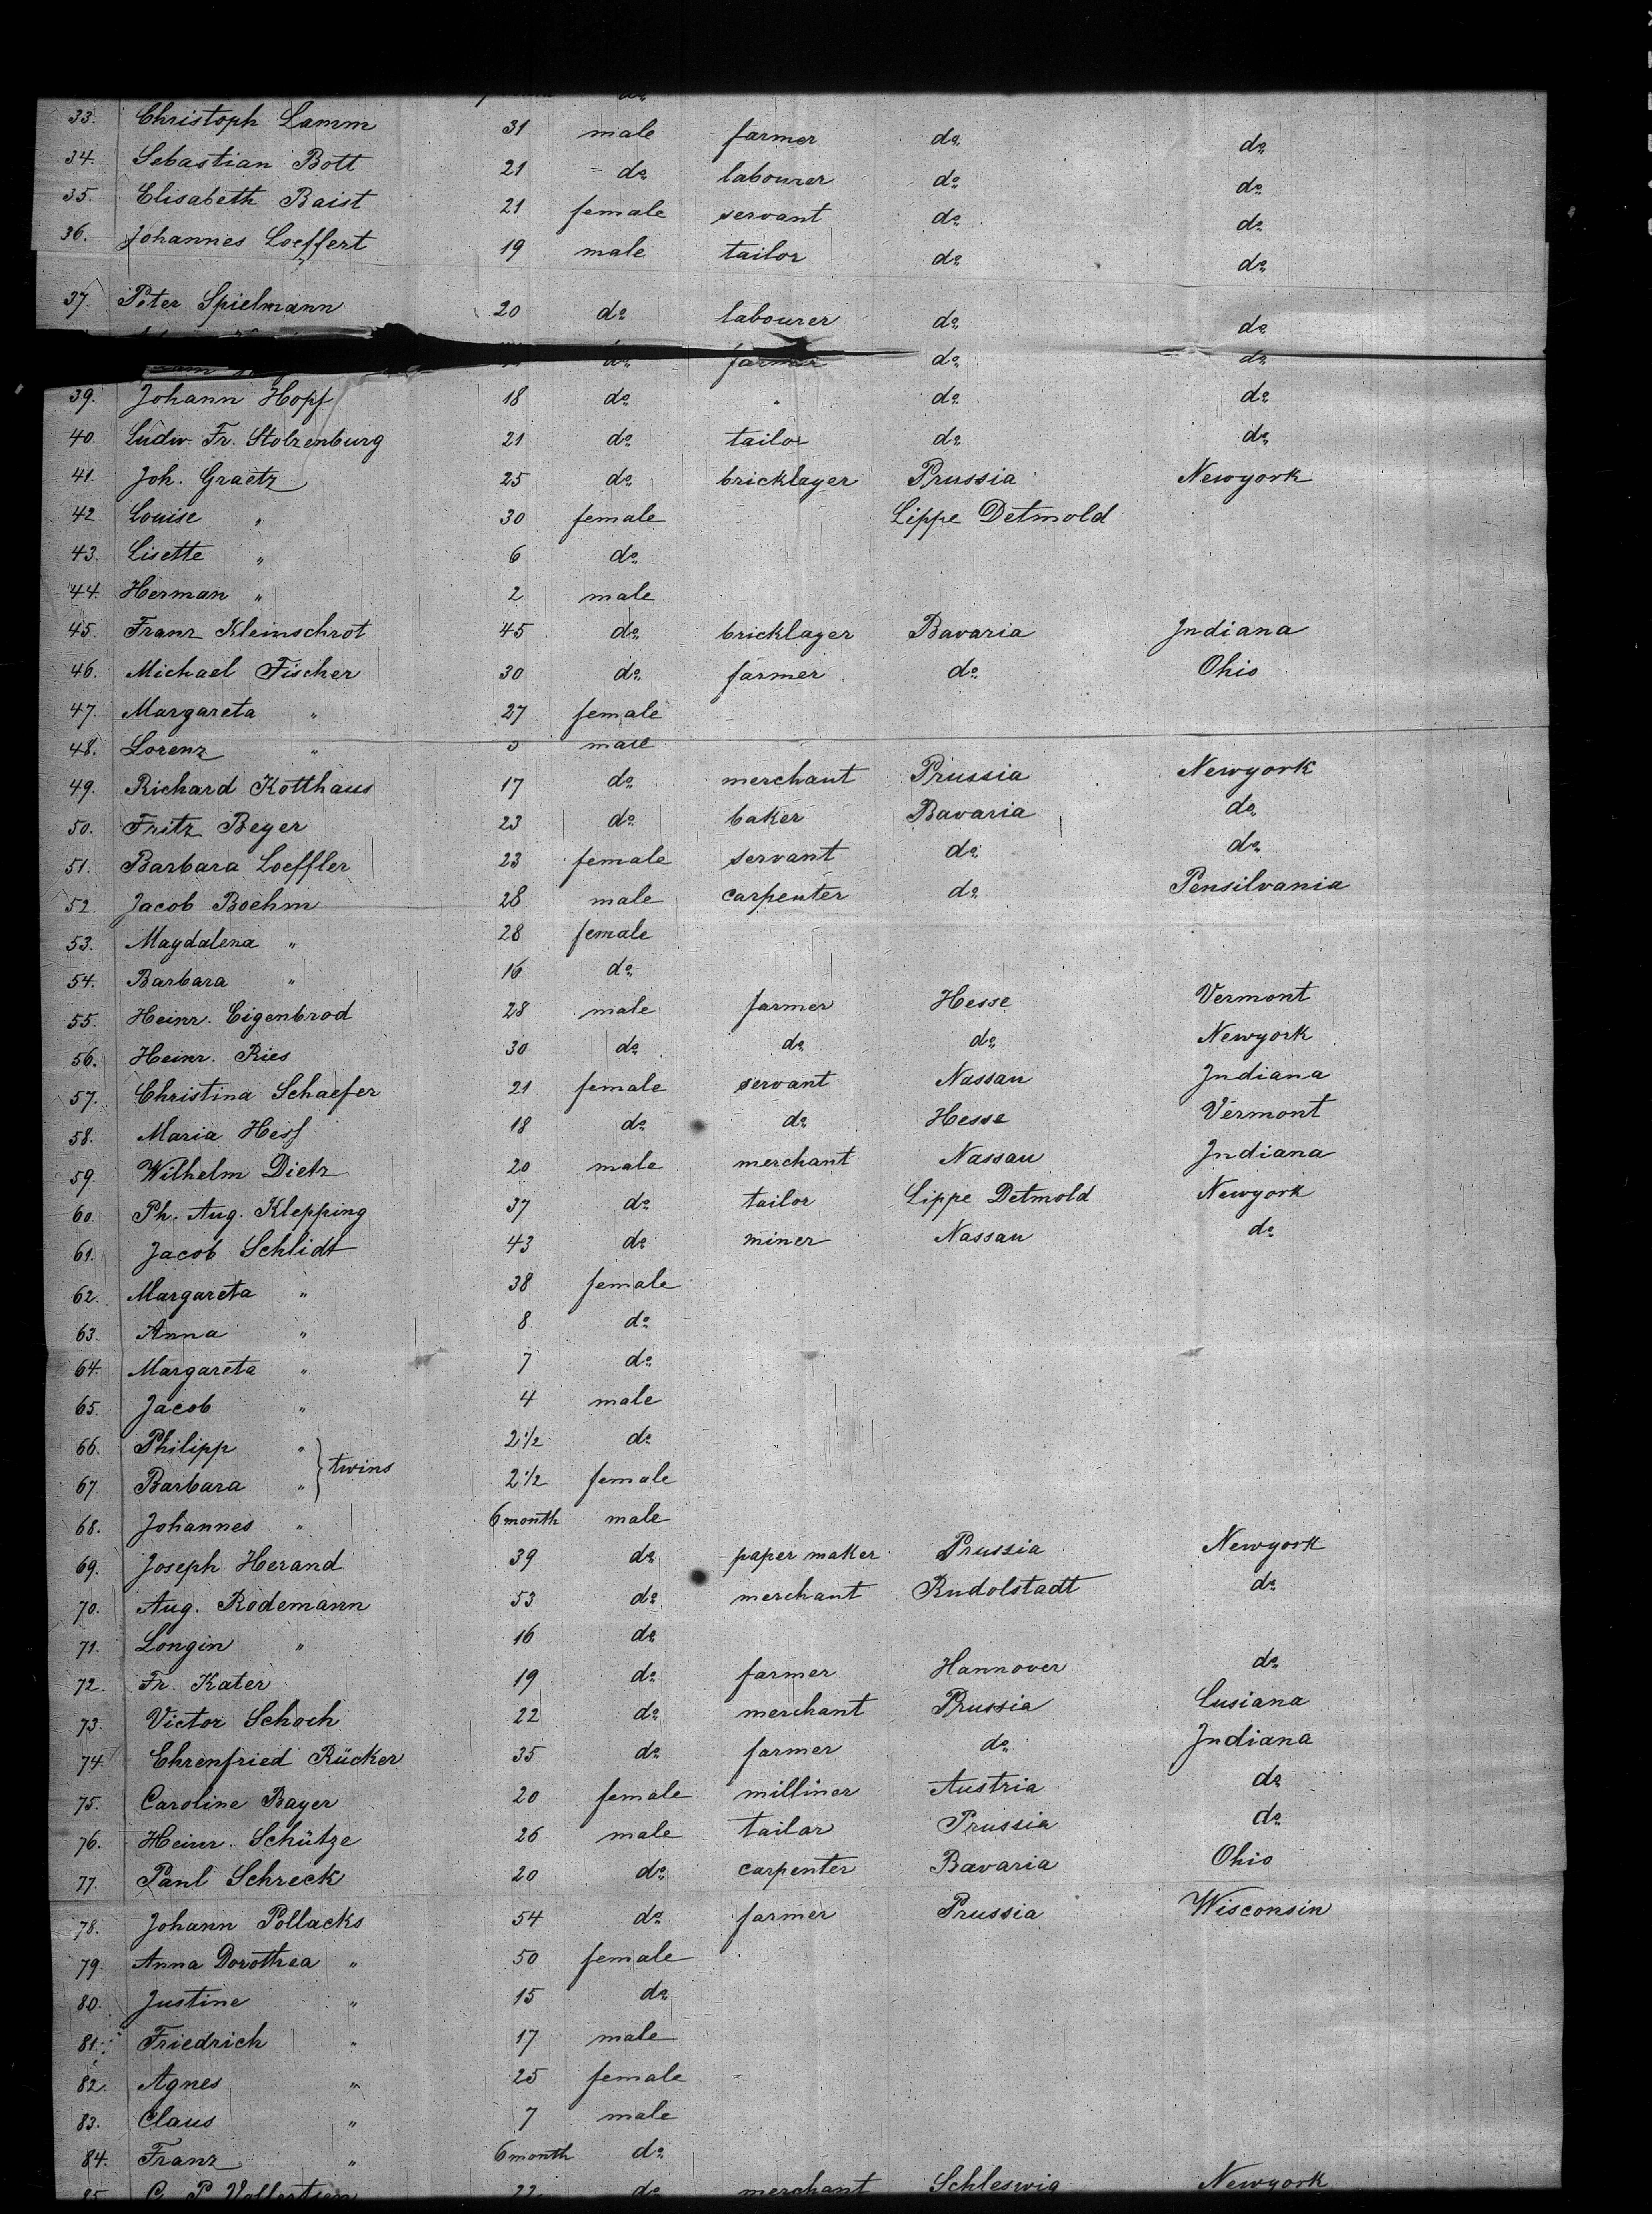 33. Christoph Lamm 31 male farmer do do
34. Sebastian Bott 21 do labourer do do
35. Elisabeth Baist 21 female servant do do
36. Johannes Loeffert 19 male tailor do do
37. Peter Spielmann 20 do labourer do do
do farmer do do
39. Johann Hopf 18 do " do do
40. Ludw. Fr. Stolzenburg 21 do tailor do do
41. Joh. Graetz 25 do bricklayer Prussia Newyork
42 Louise " 30 female Lippe Detmold
43. Lisette " 6 do
44. Herman " 2 male
45. Franz Kleinschrot 45 do bricklayer Bavaria Indiana
46. Michael Fischer 30 do farmer do Ohio
47. Margareta " 27 female
48. Lorenz " male
49. Richard Kotthaus 17 do merchant Prussia Newyork
50. Fritz Beyer 23 do baker Bavaria do
51. Barbara Loeffler 23 female servant do do
52. Jacob Boehm 28 male carpenter do Pensilvania
53. Magdalena " 28 female
54. Barbara " 16 do
55. Heinr. Eigenbrod 28 male farmer Hesse Vermont
56. Heinr. Ries 30 do do do Newyork
57. Christina Schaefer 21 female servant Nassau Indiana
58. Maria Hess 18 do do Hesse Vermont
59. Wilhelm Dietz 20 male merchant Nassau Indiana
60. Ph. Aug. Klepping 37 do tailor Lippe Detmold Newyork
61. Jacob Schlidt 43 do miner Nassau do
62. Margareta " 38 female
63. Anna " 8 do
64. Margareta " 7 do
65. Jacob " 4 male
66. Philipp " 2 1/2 do
twins
67. Barbara " 2 1/2 female
68. Johannes " 6 month male
69. Joseph Herand 39 do paper maker Prussia Newyork
70. Aug. Rodemann 53 do merchant Rudolstadt do
71. Longin " 16 do
72. Fr. Kater 19 do farmer Hannover do
73. Victor Schoch 22 do merchant Prussia Lusiana
74. Ehrenfried Rücker 35 do farmer do Indiana
75. Caroline Bayer 20 female milliner Austria do
76. Heinr. Schütze 26 male tailor Prussia do
77. Paul Schreck 20 do carpenter Bavaria Ohio
78. Johann Pollacks 54 do farmer Prussia Wisconsin
79. Anna Dorothea " 50 female
80. Justine " 15 do
81. Friedrich " 17 male
82. Agnes " 25 female
83. Claus " 7 male
84. Franz " 6 month do
85 C. P. Vollertsen 22 do merchant Schleswig Newyork